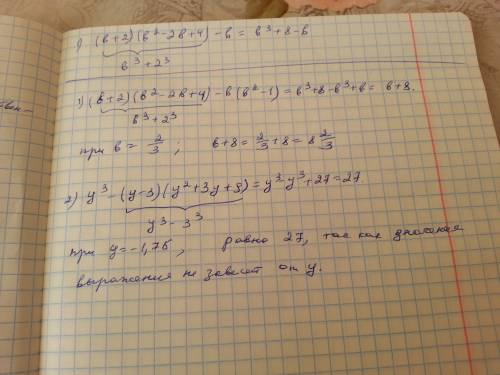 1) (b+2)(b²-2b+4)-b = b³+8-b
b³+2³
1) (b+2)(b²-2b+4)-b(b²-1)=b³+8-b³+b= b+8.
b³+2³
при b = 2/3 ; b+8 = 2/3+8 = 8 2/3
2) y³-(y-3)(y²+3y+9)=y³-y³+27=27
y³-3³
при y=-1,75, равно 27, так как значения
выражения не зависит от y.